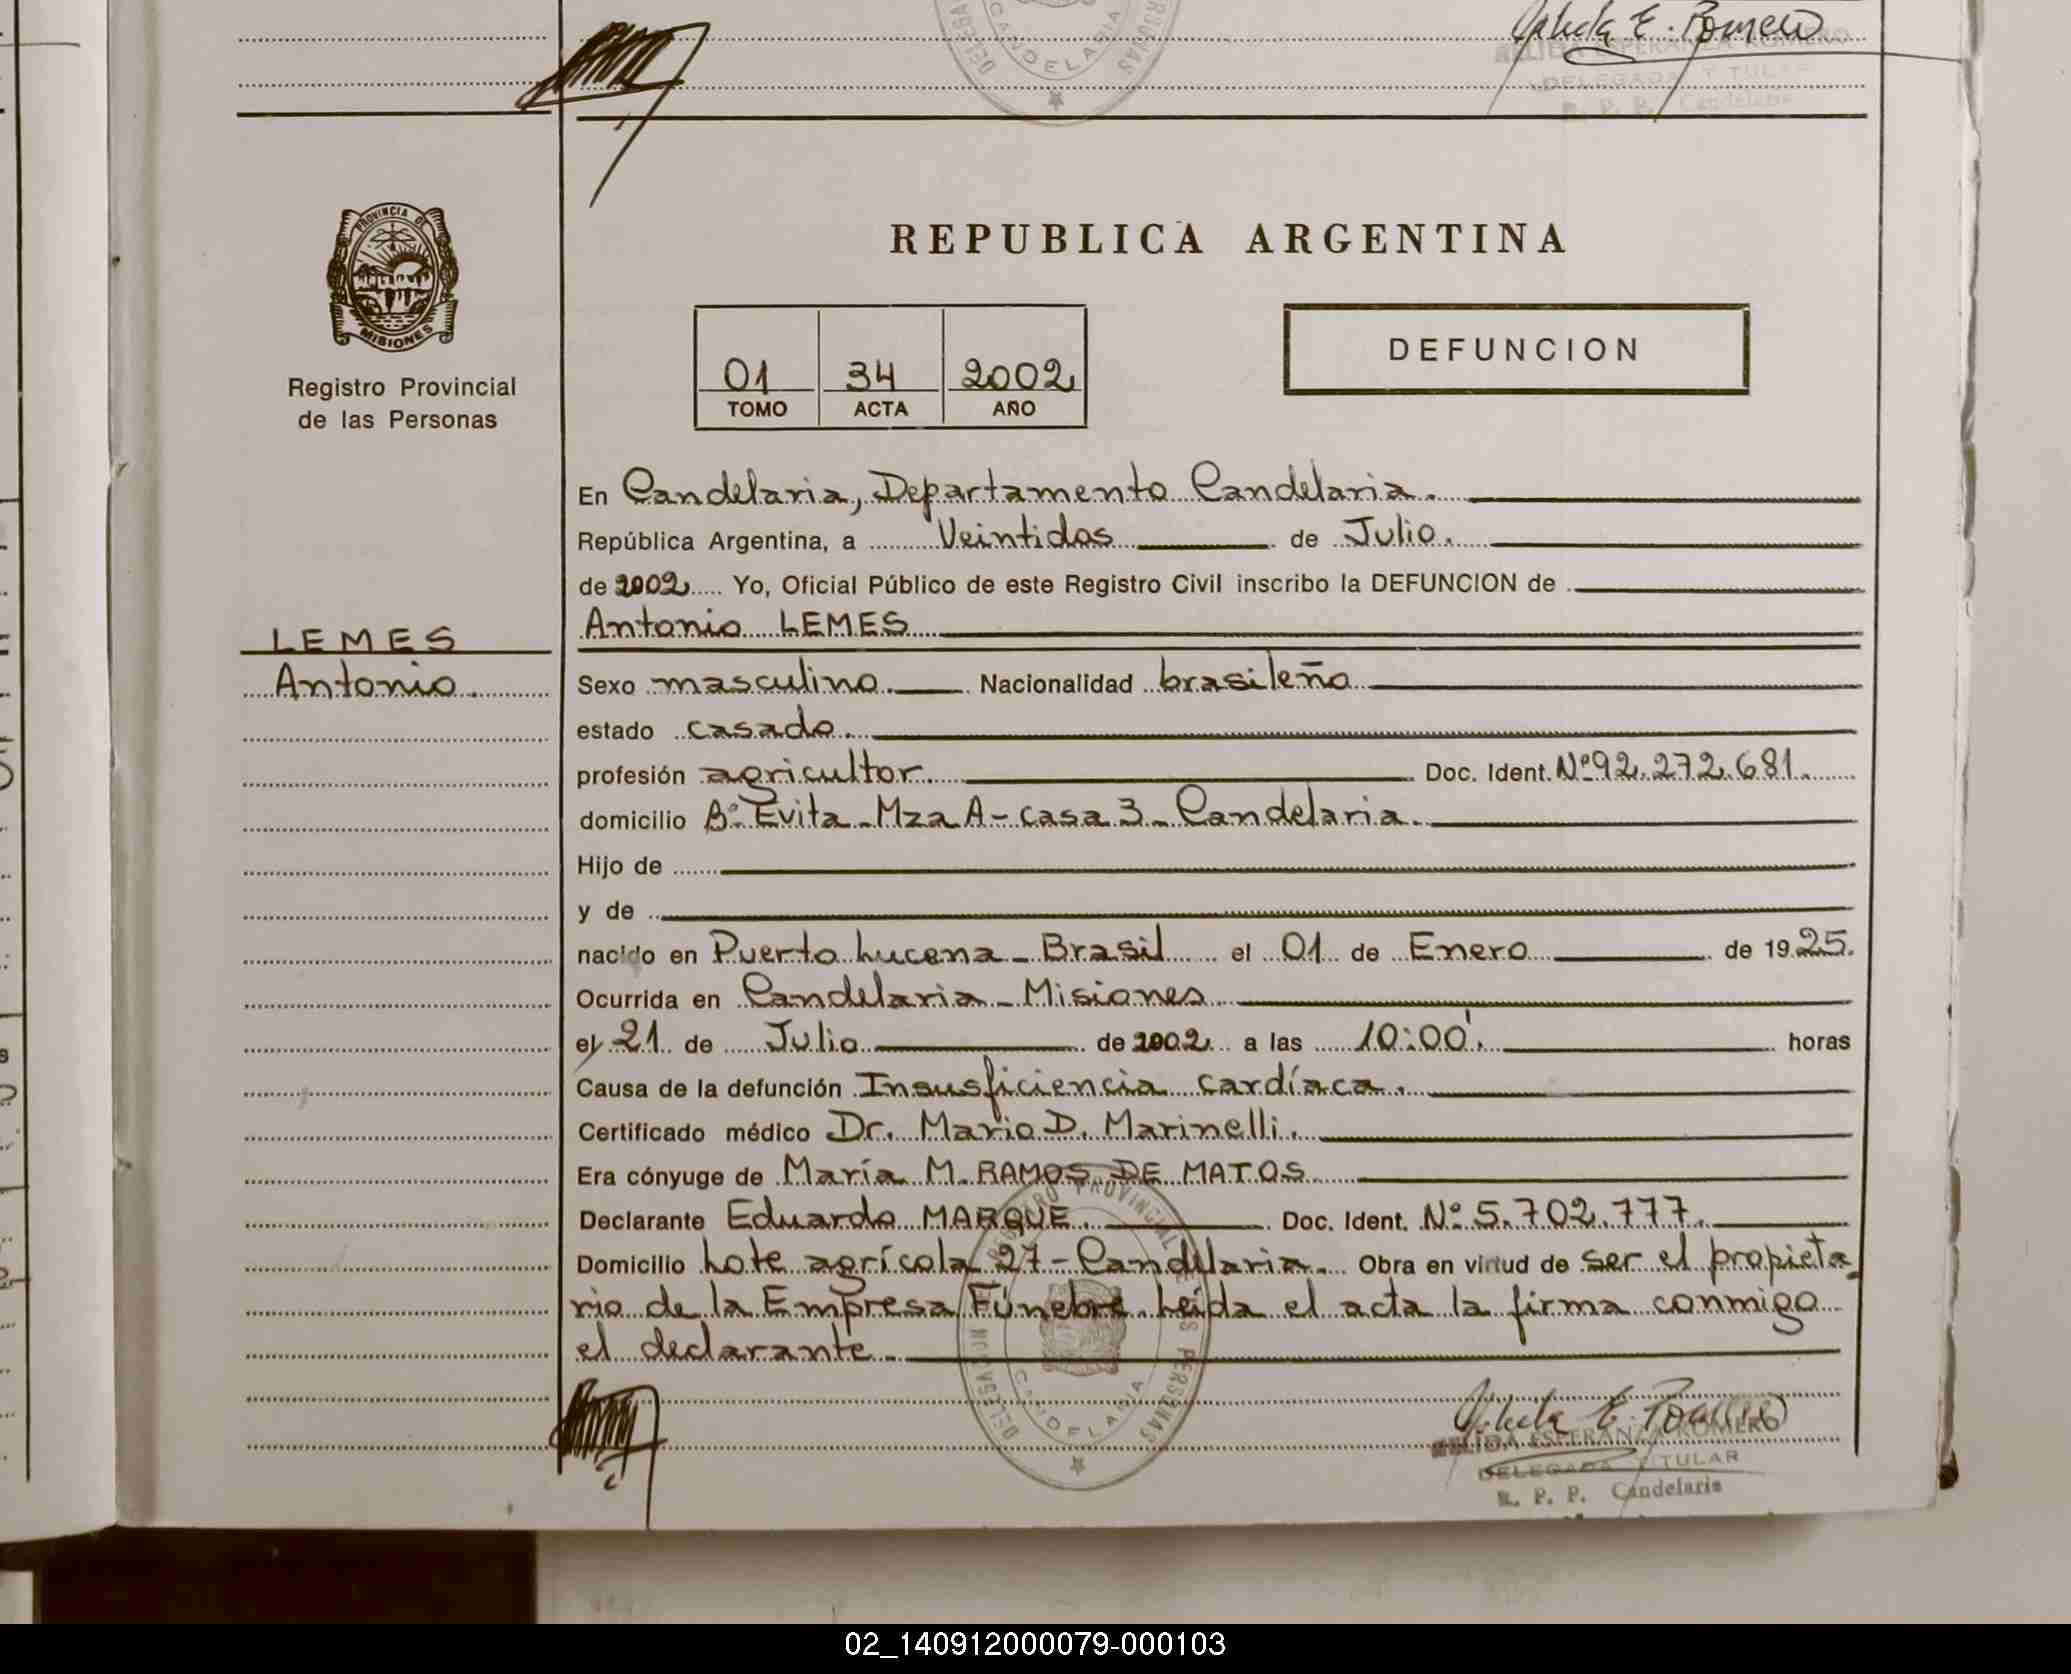 Nelida E. Romero
NELIDA ESPERANZA ROMERO
DELEGADA TITULAR
R. P. P. Candelaria
CANDELARIA
PROVINCIA DE
MISIONES
Registro Provincial
de las Personas
REPUBLICA ARGENTINA
01 34 2002
TOMO ACTA AÑO
DEFUNCION
En Candelaria, Departamento Candelaria.
República Argentina, a Veintidos de Julio.
de 2002 Yo, Oficial Público de este Registro Civil inscribo la DEFUNCION de
Antonio LEMES
LEMES
Antonio
Sexo masculino. Nacionalidad brasileño
estado casado.
profesión agricultor. Doc. Ident. Nº 92.272.681.
domicilio Bº Evita - Mza A - casa 3 - Candelaria.
Hijo de
y de
nacido en Puerto Lucena - Brasil el 01 de Enero de 1925.
Ocurrida en Candelaria - Misiones
el 21 de Julio de 2002 a las 10:00'. horas
Causa de la defunción Insusficiencia cardíaca.
Certificado médico Dr. Mario D. Marinelli.
Era cónyuge de María M. RAMOS DE MATOS
Declarante Eduardo MARQUE. Doc. Ident. Nº 5.702.777.
Domicilio Lote agrícola 27 - Candelaria. Obra en virtud de ser el propieta
rio de la Empresa Fúnebre. Leída el acta la firma conmigo
el declarante
REGISTRO PROVINCIAL DE LAS PERSONAS
CANDELARIA
Nelida E. Romero
NELIDA ESPERANZA ROMERO
DELEGADA TITULAR
R. P. P. Candelaria
02_140912000079-000103